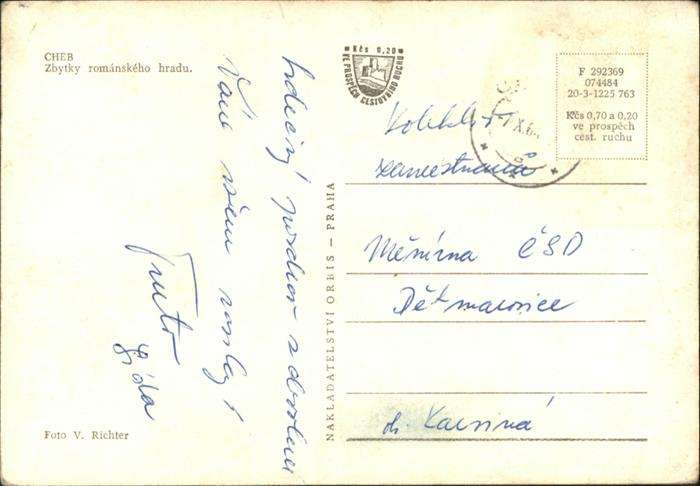 CHEB
Zbytky románského hradu.
Kčs 0,20
VE PROSPĚCH CESTOVNÍHO RUCHU
F 292369
074484
20-3-1225 763
Kčs 0,70 a 0,20
ve prospěch
cest. ruchu
Srdečný pozdrav z dovolené
Vám všem
Lída
NAKLADATELSTVÍ ORBIS — PRAHA
Kolektiv
zaměstnanců
Měnírna ČSD
Dětmarovice
o. Karviná
Foto V. Richter